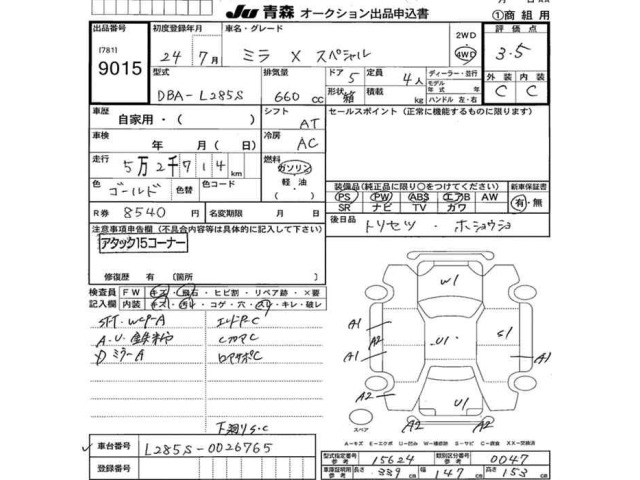 Ju 青森 オークション出品申込書
①商組用
出品番号 (781) 9015
初度登録年月 24年7月
車名・グレード ミラ X スペシャル
2WD 4WD
評価点 3.5
型式 DBA-L285S
排気量 660 cc
ドア 5 形状 箱
定員 4人 積載 kg
ディーラー・並行
モデル年式 年式
ハンドル 左・右
外装 C 内装 C
車歴 自家用・( )
シフト AT
セールスポイント (正常に機能するものに限ります)
車検 年 月(日)
冷房 AC
走行 5万2千714km
燃料 ガソリン 軽油 ( )
色 ゴールド 色替 色コード
装備品(純正品に限り○をつけてください) 新車保証書
PS PW ABS エアB AW 有・無
SR ナビ TV カワ
R券 8540円 名変期限 月 日
後日品 トリセツ・ホショウショ
注意事項申告欄(不具合内容等は具体的に記入して下さい)
アタック15コーナー
修復歴 有 (箇所 )
検査員記入欄 FW キズ・飛石・ヒビ割・リペア跡・×要
内装 キズ・汚れ・コゲ・穴・スレ・キレ・破レ
A・U
ミラーA
W1
A1 A1 U1 S1 A1
U1
A2 A2
スペア
A-キズ E-エクボ U-凹み W-補修跡 S-サビ C-腐食 XX-交換済
車台番号 L285S-0026765
登録番号
型式指定番号 参考 15624 類別区分番号 参考 0047
車庫証明用参考 長さ 339cm 幅 147cm 高さ 153cm